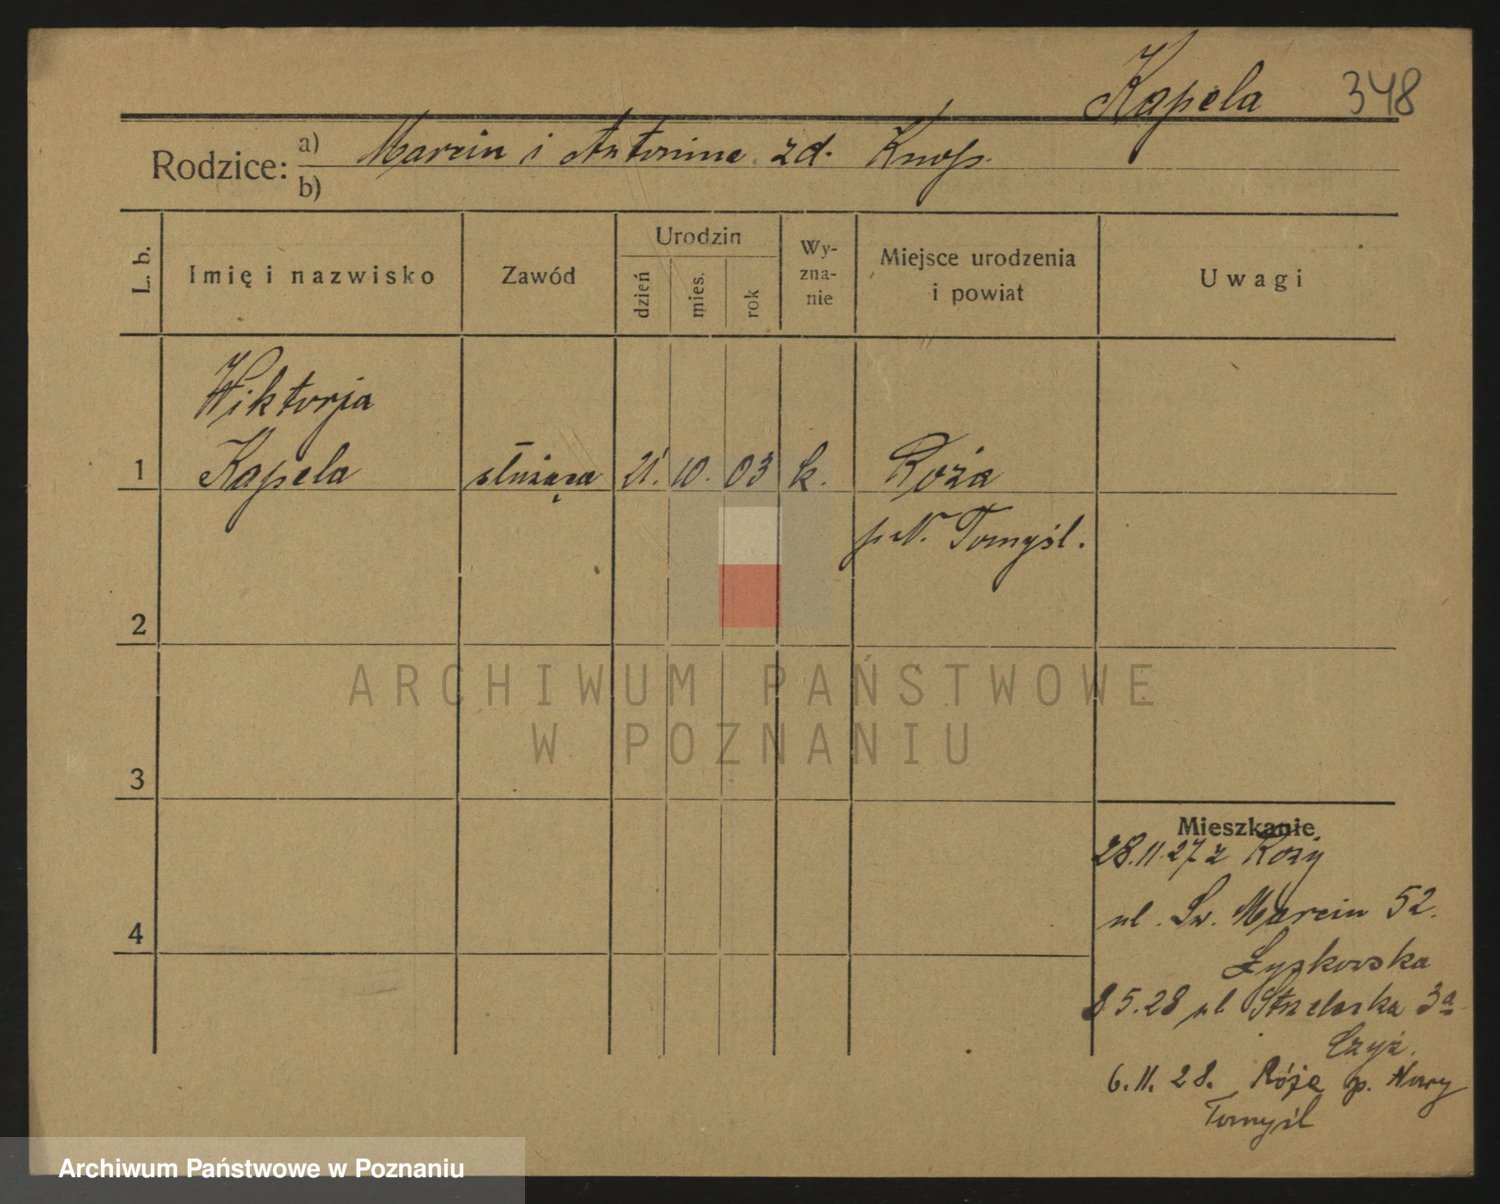 Kapela 348
Rodzice: a) Marcin i Antonina zd. Knop.
b)
L. b.
Imię i nazwisko
Zawód
Urodzin
dzień
mies.
rok
Wy-
zna-
nie
Miejsce urodzenia
i powiat
Uwagi
Wiktorja
1 Kapela służąca 21. 10. 03 k. Roża
p. N. Tomyśl.
2
3
4
Mieszkanie
28.11.27 z Roży
ul. Św. Marcin 52.
Łyskowska
8 5.28 ul Strzelecka 3a
Czyż.
6.11.28. Róże p. Nowy
Tomyśl
ARCHIWUM PAŃSTWOWE
W POZNANIU
Archiwum Państwowe w Poznaniu